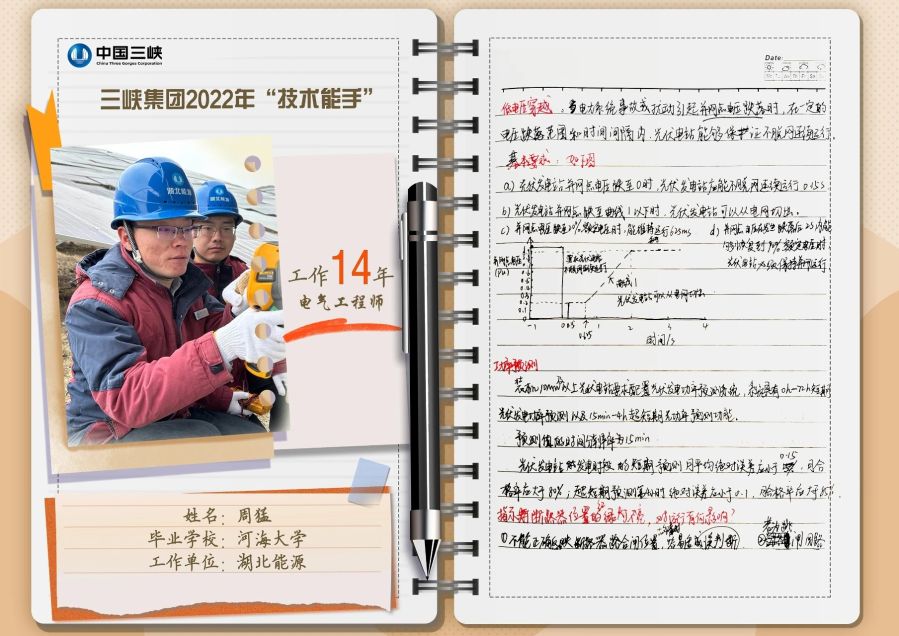 中国三峡
China Three Gorges Corporation
三峡集团2022年“技术能手”
湖北能源
工作14年
电气工程师
姓名：周猛
毕业学校：河海大学
工作单位：湖北能源
Date
低电压穿越：当电力系统事故或扰动引起并网点电压跌落时，在一定的
电压跌落范围和时间间隔内，光伏电站能够保护证不脱网连续运行
基本要求：如图
a) 光伏发电站并网点电压跌至0时，光伏发电站应能不脱网连续运行0.15s
b) 光伏发电站并网点跌至曲线1以下时，光伏发电站可以从电网切出。
c) 并网点电压跌至20%额定电压时，能维持运行625ms
d) 并网点电压在发生跌落后2s内能
够恢复到90%额定电压时
光伏电站必须保持并网运行
并网点电压
(pu)
曲线1
光伏发电站可以从电网切出
-1 0 0.15 0.625 1 2 3 4
时间/s
功率预测
装机10MW及以上光伏电站要求配置光伏发电功率预测系统，系统具有0h-72h短期
光伏发电功率预测以及15min-4h超短期光功率预测功能。
预测值的时间分辨率为15min
光伏发电站发电时段的短期预测月平均绝对误差应小于0.15，月合
格率应大于80%；超短期预测第4小时绝对误差应小于0.1，合格率应大于85%.
指示断路器位置的绿灯不亮，对运行有何影响？
①不能正确反映断路器跳合闸位置，容易造成误判断